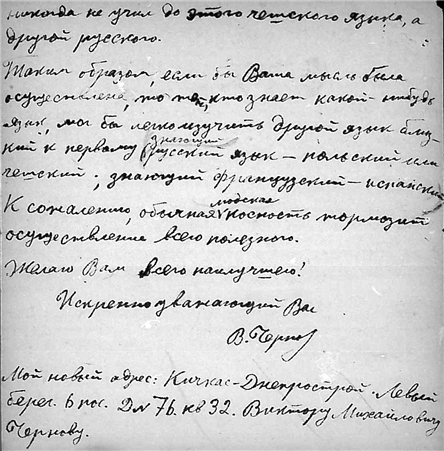 никогда не учил до этого чешского языка, а
другой русского.
Таким образом, если бы Ваша мысль была
осуществлена, то тот, кто знает какой-нибудь
язык, мог бы легко изучить другой язык близ-
кий к первому (знающий русский язык – польский или
чешский; знающий французский – испанский
К сожалению, обычная людская косность тормозит
осуществление всего полезного.
Желаю Вам всего наилучшего!
Искренно уважающий Вас
В. Чернов
Мой новый адрес: Кичкас-Днепрострой. Левый
берег. 6 пос. Д№ 76. кв 32. Виктору Михайловичу
Чернову.